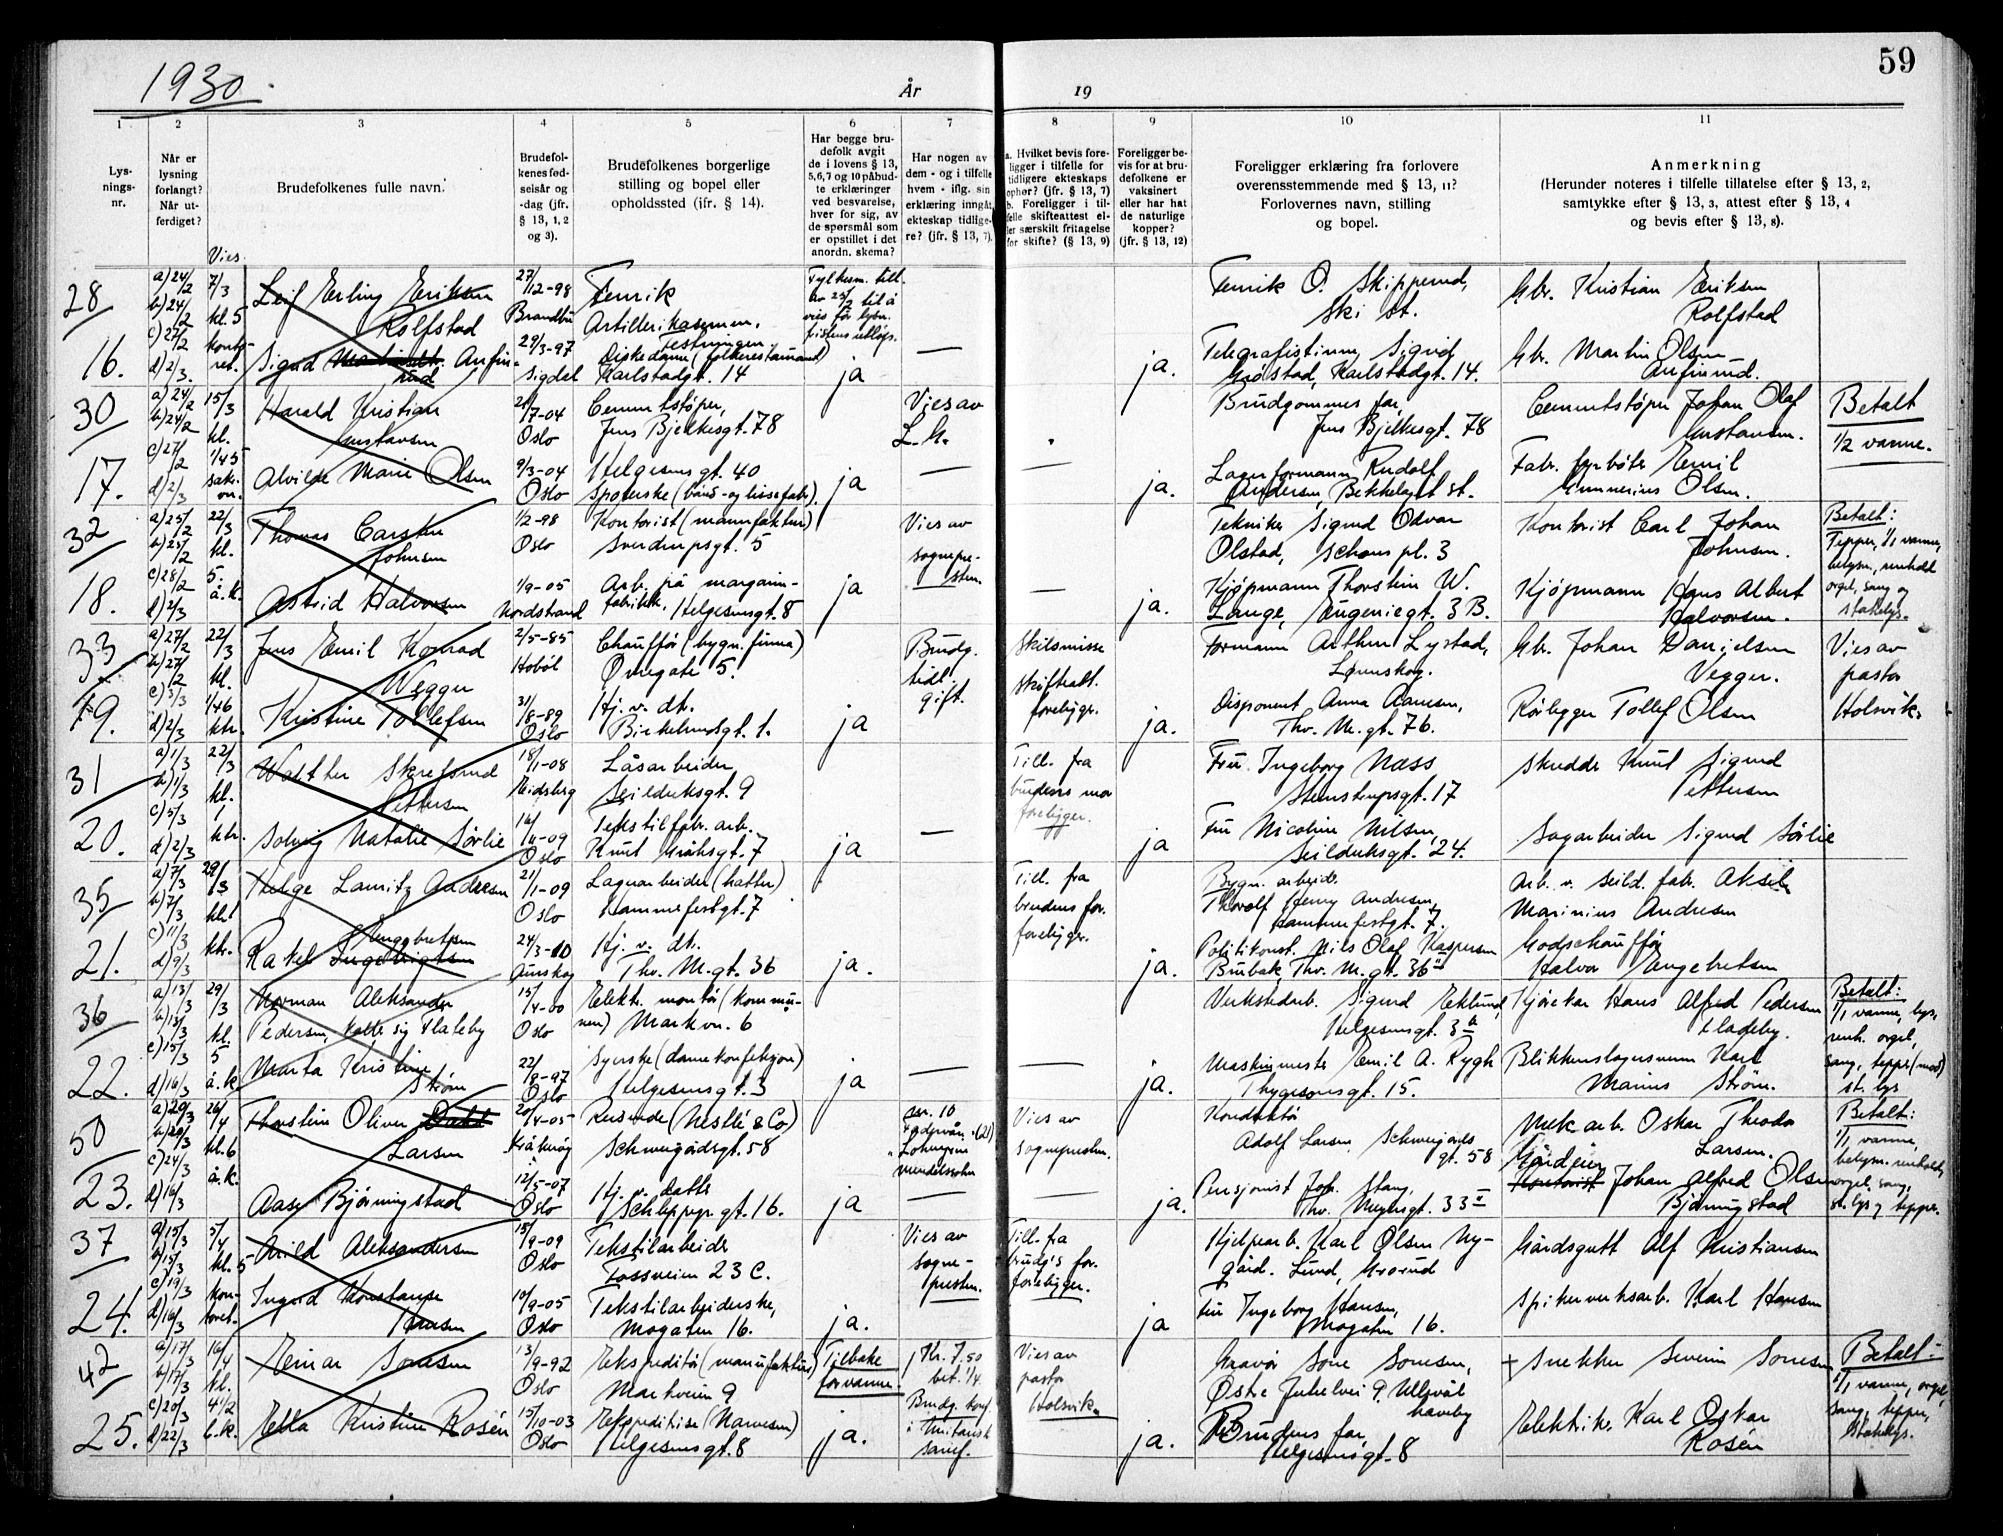 59
1930.
År
19
1
2
3
4
5
6
7
8
9
10
11
Lys-
nings-
nr.
Når er
lysning
forlangt?
Når ut-
ferdiget?
Brudefolkenes fulle navn.
Brudefol-
kenes fød-
selsår og
-dag (jfr.
§ 13, 1, 2
og 3).
Brudefolkenes borgerlige
stilling og bopel eller
opholdssted (jfr. § 14).
Har begge bru-
defolk avgit
de i lovens § 13,
5, 6, 7 og 10 påbud-
te erklæringer
ved besvarelse,
hver for sig, av
de spørsmål som
er opstillet i det
anordn. skema?
Har nogen av
dem - og i tilfelle
hvem - iflg. sin
erklæring inngåt
ekteskap tidlige-
re? (jfr. § 13, 7).
a. Hvilket bevis fore-
ligger i tilfelle for
tidligere ekteskaps
ophør? (jfr. § 13, 7)
b. Foreligger i til-
felle skifteattest el-
ler særskilt fritagelse
for skifte? (§ 13, 9)
Foreligger be-
vis for at bru-
defolkene er
vaksinert
eller har hat
de naturlige
kopper?
(jfr. § 13, 12)
Foreligger erklæring fra forlovere
overensstemmende med § 13, 11?
Forlovernes navn, stilling
og bopel.
Anmerkning
(Herunder noteres i tilfelle tillatelse efter § 13, 2,
samtykke efter § 13, 3, attest efter § 13, 4
og bevis efter § 13, 8).
Vies
28
16.
a) 24/2
b) 24/2
c) 27/2
d) 2/3.
7/3
kl. 5
konto-
ret.
Leif Erling Eriksen
Rolfstad
Sigrid Anfin-
rud
27/12-98
Brandbu
29/3-97
Sigdal
Fenrik
Artillerikasernen,
Festningen.
Diskedame (folkerestaurand)
Karlstadgt. 14
Fylkesm. till.
av 25/2 til å
vies før lysn.
fristens utløp.
ja
—
ja.
Fenrik O. Skipperud,
Ski st.
Telegrafistinne Sigrid
Grøstad, Karlstadgt. 14.
Gbr. Kristian Eriksen
Rolfstad
Gbr. Martin Olsen
Anfinrud.
30
17.
a) 24/2
b) 24/2
c) 27/2
d) 2/3
15/3
kl.
1/45
sakr.
Harald Kristian
Gustavsen
Alvilde Marie Olsen
21/7-04
Oslo
9/3-04
Oslo
Cementstøper,
Jens Bjelkesgt. 78
Helgesensgt. 40
Spolerske (bånd- og lissefabr.).
ja
Vies av
—
—
ja.
Brudgommens far,
Jens Bjelkesgt. 78
Lagerformann Rudolf
Andersen, Bekkelaget st.
Cementstøper Johan Olaf
Gustavsen.
Fabr. fyrbøter Emil
Gunnerius Olsen.
Betalt
1/2 varme.
32
18.
a) 25/2
b) 25/2
c) 28/2
d) 2/3
22/3
kl.
5.
å.k.
Thomas Carsten
Johnsen
Astrid Halvorsen
1/2-98
Oslo
1/9-05
Nordstrand
Kontorist (manufaktur)
Sverdrupsgt. 5
Arb. på margarin-
fabrikk, Helgesensgt. 8
ja
Vies av
sognepre-
sten.
—
ja.
Tekniker Sigurd Odvar
Olstad, Schous pl. 3
Kjøpmann Thorstein W.
Lange, Eugeniegt. 3 B.
Kontorist Carl Johan
Johnsen.
Kjøpmann Hans Albert
Halvorsen.
Betalt:
Tepper, 1/1 varme,
belysn., renhold
orgel, sang og
stakelys.
33
19.
a) 27/2
b) 27/2
c) 3/3
d) 2/3
22/3
kl.
1/46
ktr.
Jens Emil Konrad
Wegger
Kristine Tollefsen
2/5-85
Hobøl
31/8-89
Oslo
Chauffør (bygn. firma)
Øvregate 5.
Hj. v. dtr.
Birkelundsgt. 1.
ja
Brudg.
tidl.
gift.
Skilsmisse
skifteatt.
foreligger.
ja.
Formann Arthur Lystad,
Lørenskog.
Disponent Anna Aanesen,
Thv. M. gt. 76.
Gbr. Johan Danielsen
Vegger.
Rørlegger Tollef Olsen
Vies av
pastor
Holsvik.
31
20.
a) 1/3
b) 1/3
c) 5/3
d) 2/3
22/3
kl.
1
ktr.
Walther Skrefsrud
Pettersen
Solveig Natalie Sørlie
18/1-08
Eidsberg
16/11-09
Oslo
Låsarbeider
Seilduksgt. 9
Tekstilfabr. arb.
Knut Gråhsgt. 7
ja
—
Till. fra
brudens mor
foreligger.
ja
Fru Ingeborg Næss
Stenstrupsgt. 17
Fru Nicoline Nilsen
Seilduksgt. 24.
Skredder Knut Sigurd
Pettersen
Sagarbeider Sigurd Sørlie
35
21.
a) 7/3
b) 7/3
c) 11/3
d) 9/3
29/3
kl. 1
ktr.
Helge Lauritz Andersen
Engebretsen
Rakel
21/1-09
Oslo
24/3-10
Aurskog
Lagerarbeider (hatter)
Hammerfestgt. 7
Hj. v. dtr.
Thv. M. gt. 36
ja.
Till. fra
brudens for.
foreligger.
ja.
Bygn. arbeid.
Thorolf Henry Andresen,
Hammerfestgt. 7.
Politikonst. Nils Olaf Kaspersen
Brubak, Thv. M. gt. 36 II
Arb. v. seild. fabr. Aksel
Marinius Andresen
Godschauffør
Halvor Engebretsen
36
22.
a) 13/3
b) 13/3
c) 15/3
d) 16/3
29/3
kl.
5
å.k.
Norman Aleksander
Pedersen, kaller sig Fladeby
Marta Kristine
Strøm
15/4-00
Oslo
22/9-97
Oslo
Elektr. montør (kommu-
nen) Markvn. 6
Syerske (damekonfeksjon)
Helgesensgt. 3
ja
—
—
ja.
Verkstedarb. Sigurd Eklund,
Helgesensgt. 3 a
Maskinmester Emil A. Rygh
Thygesonsgt. 15.
Kjørekar Hans Alfred Pedersen
Fladeby.
Blikkenslagersvenn Karl
Marius Strøm.
Betalt:
1/1 varme, lys,
renh. orgel,
sang, tepper (med)
st. lys
50
23.
a) 29/3
c) 24/3
d) 16/3
26/4
kl. 6
å.k.
Thorstein Oliver Dahl
Larsen
Aase Bjørningstad
20/4-05
Kråkerøy
12/5-07
Oslo
Reisende (Nestlé & Co)
Schweigårdsgt. 58
Hj. v. datter
Schleppegr. gt. 16.
ja
Lohengrin
Mendelssohn
—
Vies av
sognepresten.
—
ja.
Konduktør
Adolf Larsen Schweigårds
gt. 58
Pensjonist Joh. Stang,
Thv. Meyersgt. 33 II
Mek. arb. Oskar Theodor
Larsen.
Gårdeier
Kontorist Johan Alfred Olsen
Bjørningstad
Betalt:
1/1 varme,
belysn. renhold,
orgel, sang,
st. lys og tepper.
37
24.
a) 15/3
b) 15/3
c) 19/3
d) 16/3
5/4
kl. 5
kon-
toret.
Arild Aleksandersen
Ingrid Konstanse
Hansen
15/9-09
Oslo
10/9-05
Oslo
Tekstilarbeider
Fossveien 23 C.
Tekstilarbeiderske,
Mogaten 16.
ja.
Vies av
sogne-
presten.
Till. fra
brudg's for.
foreligger.
ja
Hjelpearb. Karl Olsen Ny-
gård. Lund, Grorud
Fru Ingeborg Hansen,
Mogaten 16.
Gårdsgutt Alf Kristiansen
Spikerverksarb. Karl Hansen
42
25.
a) 17/3
b) 17/3
c) 20/3
d) 22/3
16/4
kl.
4 1/2
Einar Sørensen
Etta Kristine Rosén
13/9-92
Oslo
15/10-03
Oslo
Ekspeditør (manufaktur)
Markveien 9
Ekspeditrise (Narvesen)
Helgesensgt. 8
Tilbake
for varme.
ja.
Kr. 7.50
bet. 1/4.
Brudg. konf.
i Unitarisk
samf.
Vies av
pastor
Holsvik.
ja.
Gravør Sone Sonesen,
Østre Jutulvei 9, Ullevål
haveby
Brudens far,
Helgesensgt. 8
+ Snekker Severin Sonesen
Elektrik. Karl Oskar
Rosén
Betalt:
1/1 varme, orgel,
sang, tepper,
stakelys.